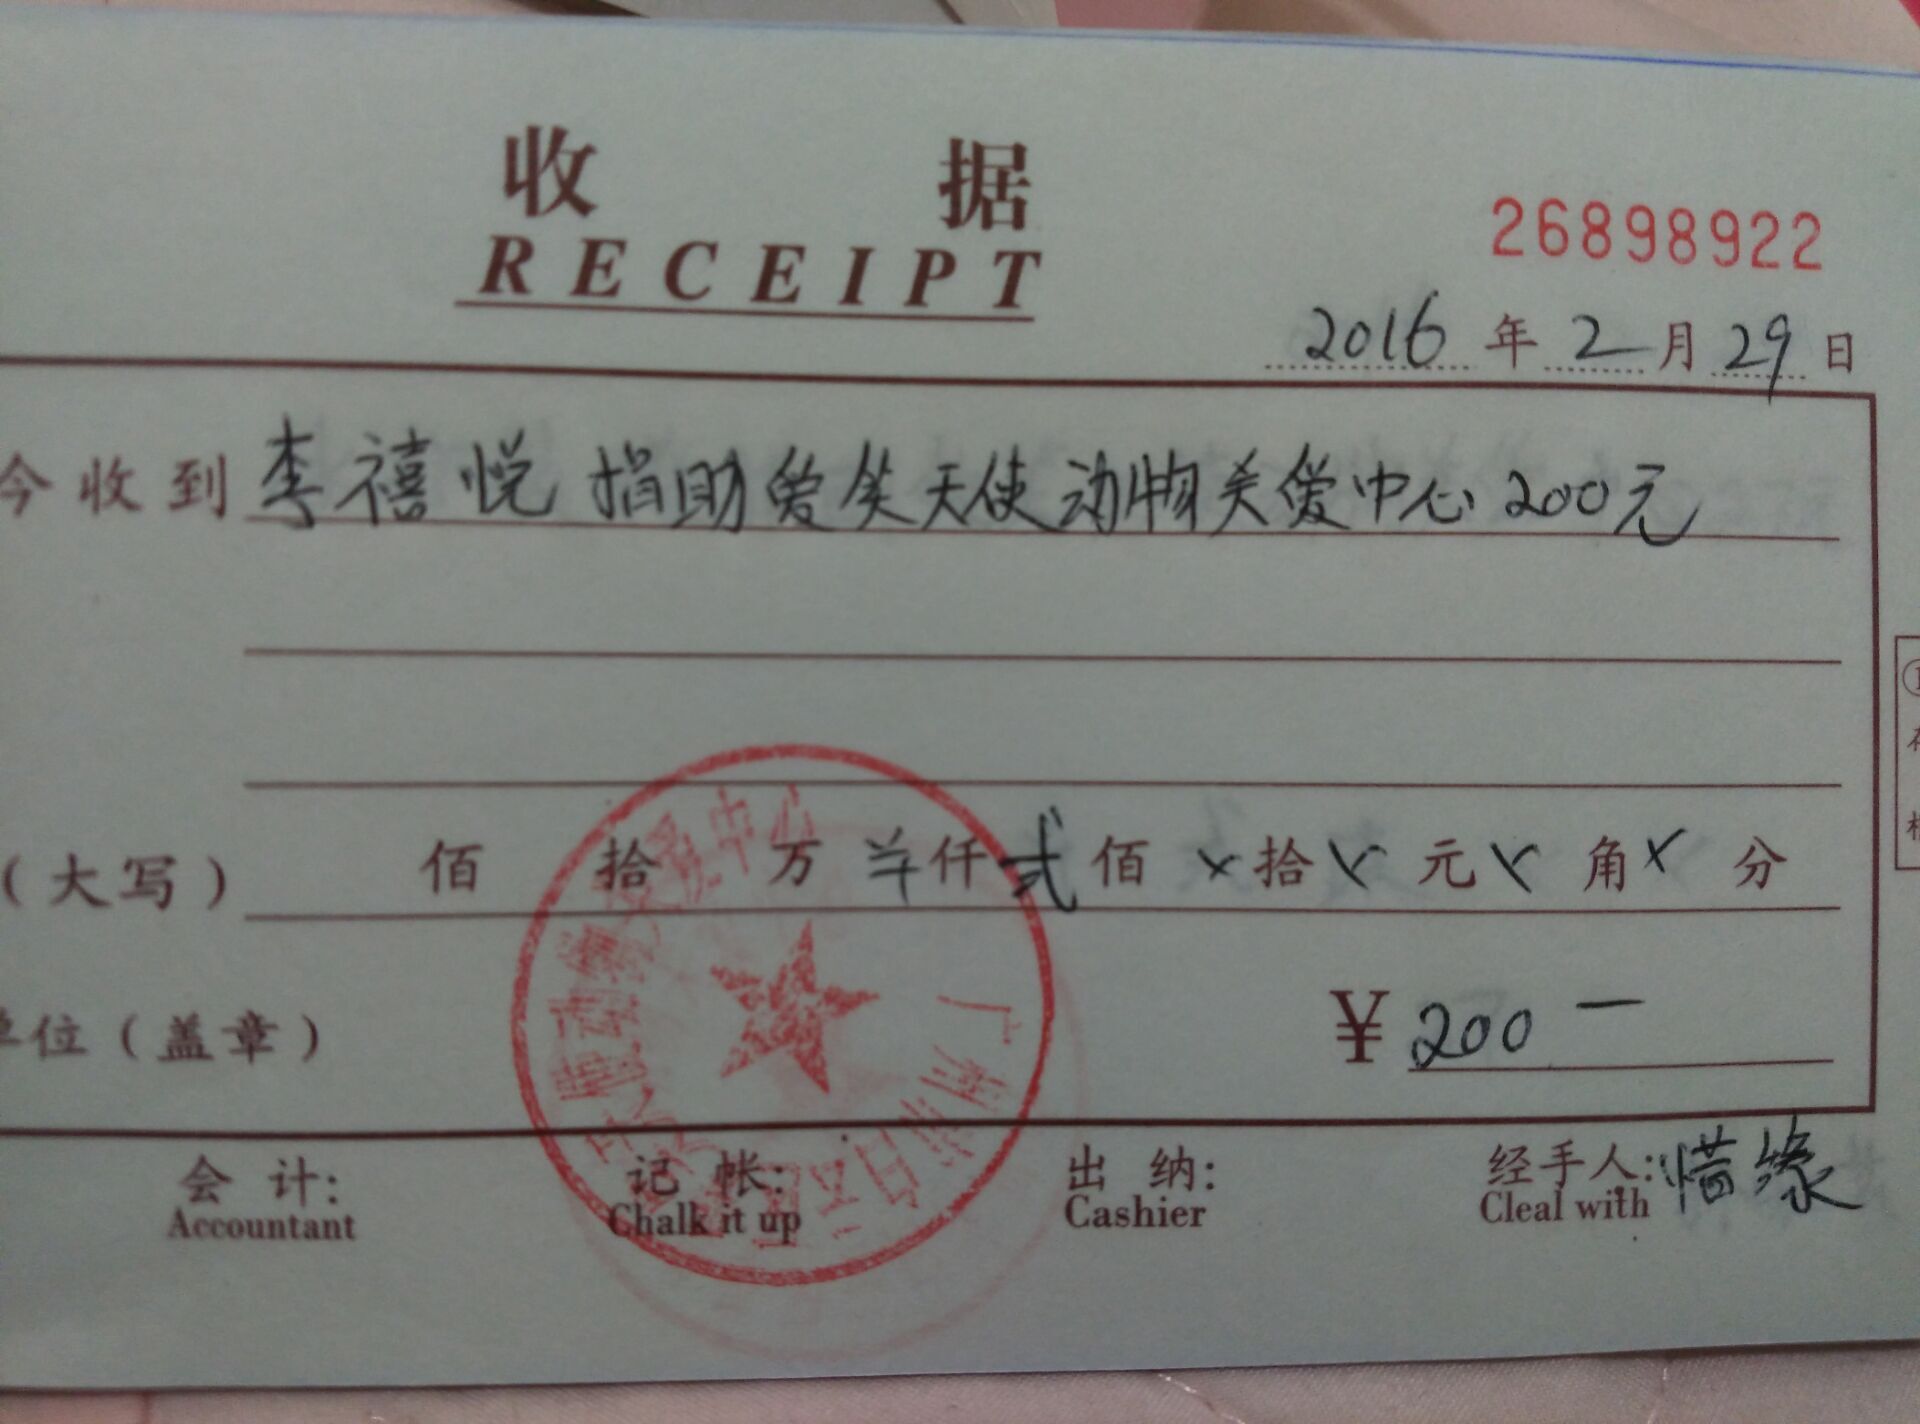 收据
RECEIPT
26898922
2016年2月29日
今收到李禧悦捐助爱笑天使动物关爱中心200元
(大写) 佰 拾 万 仟贰佰×拾×元×角×分
单位(盖章) ¥200—
会计: 记帐: 出纳: 经手人:惜缘
Accountant Chalk it up Cashier Cleal with